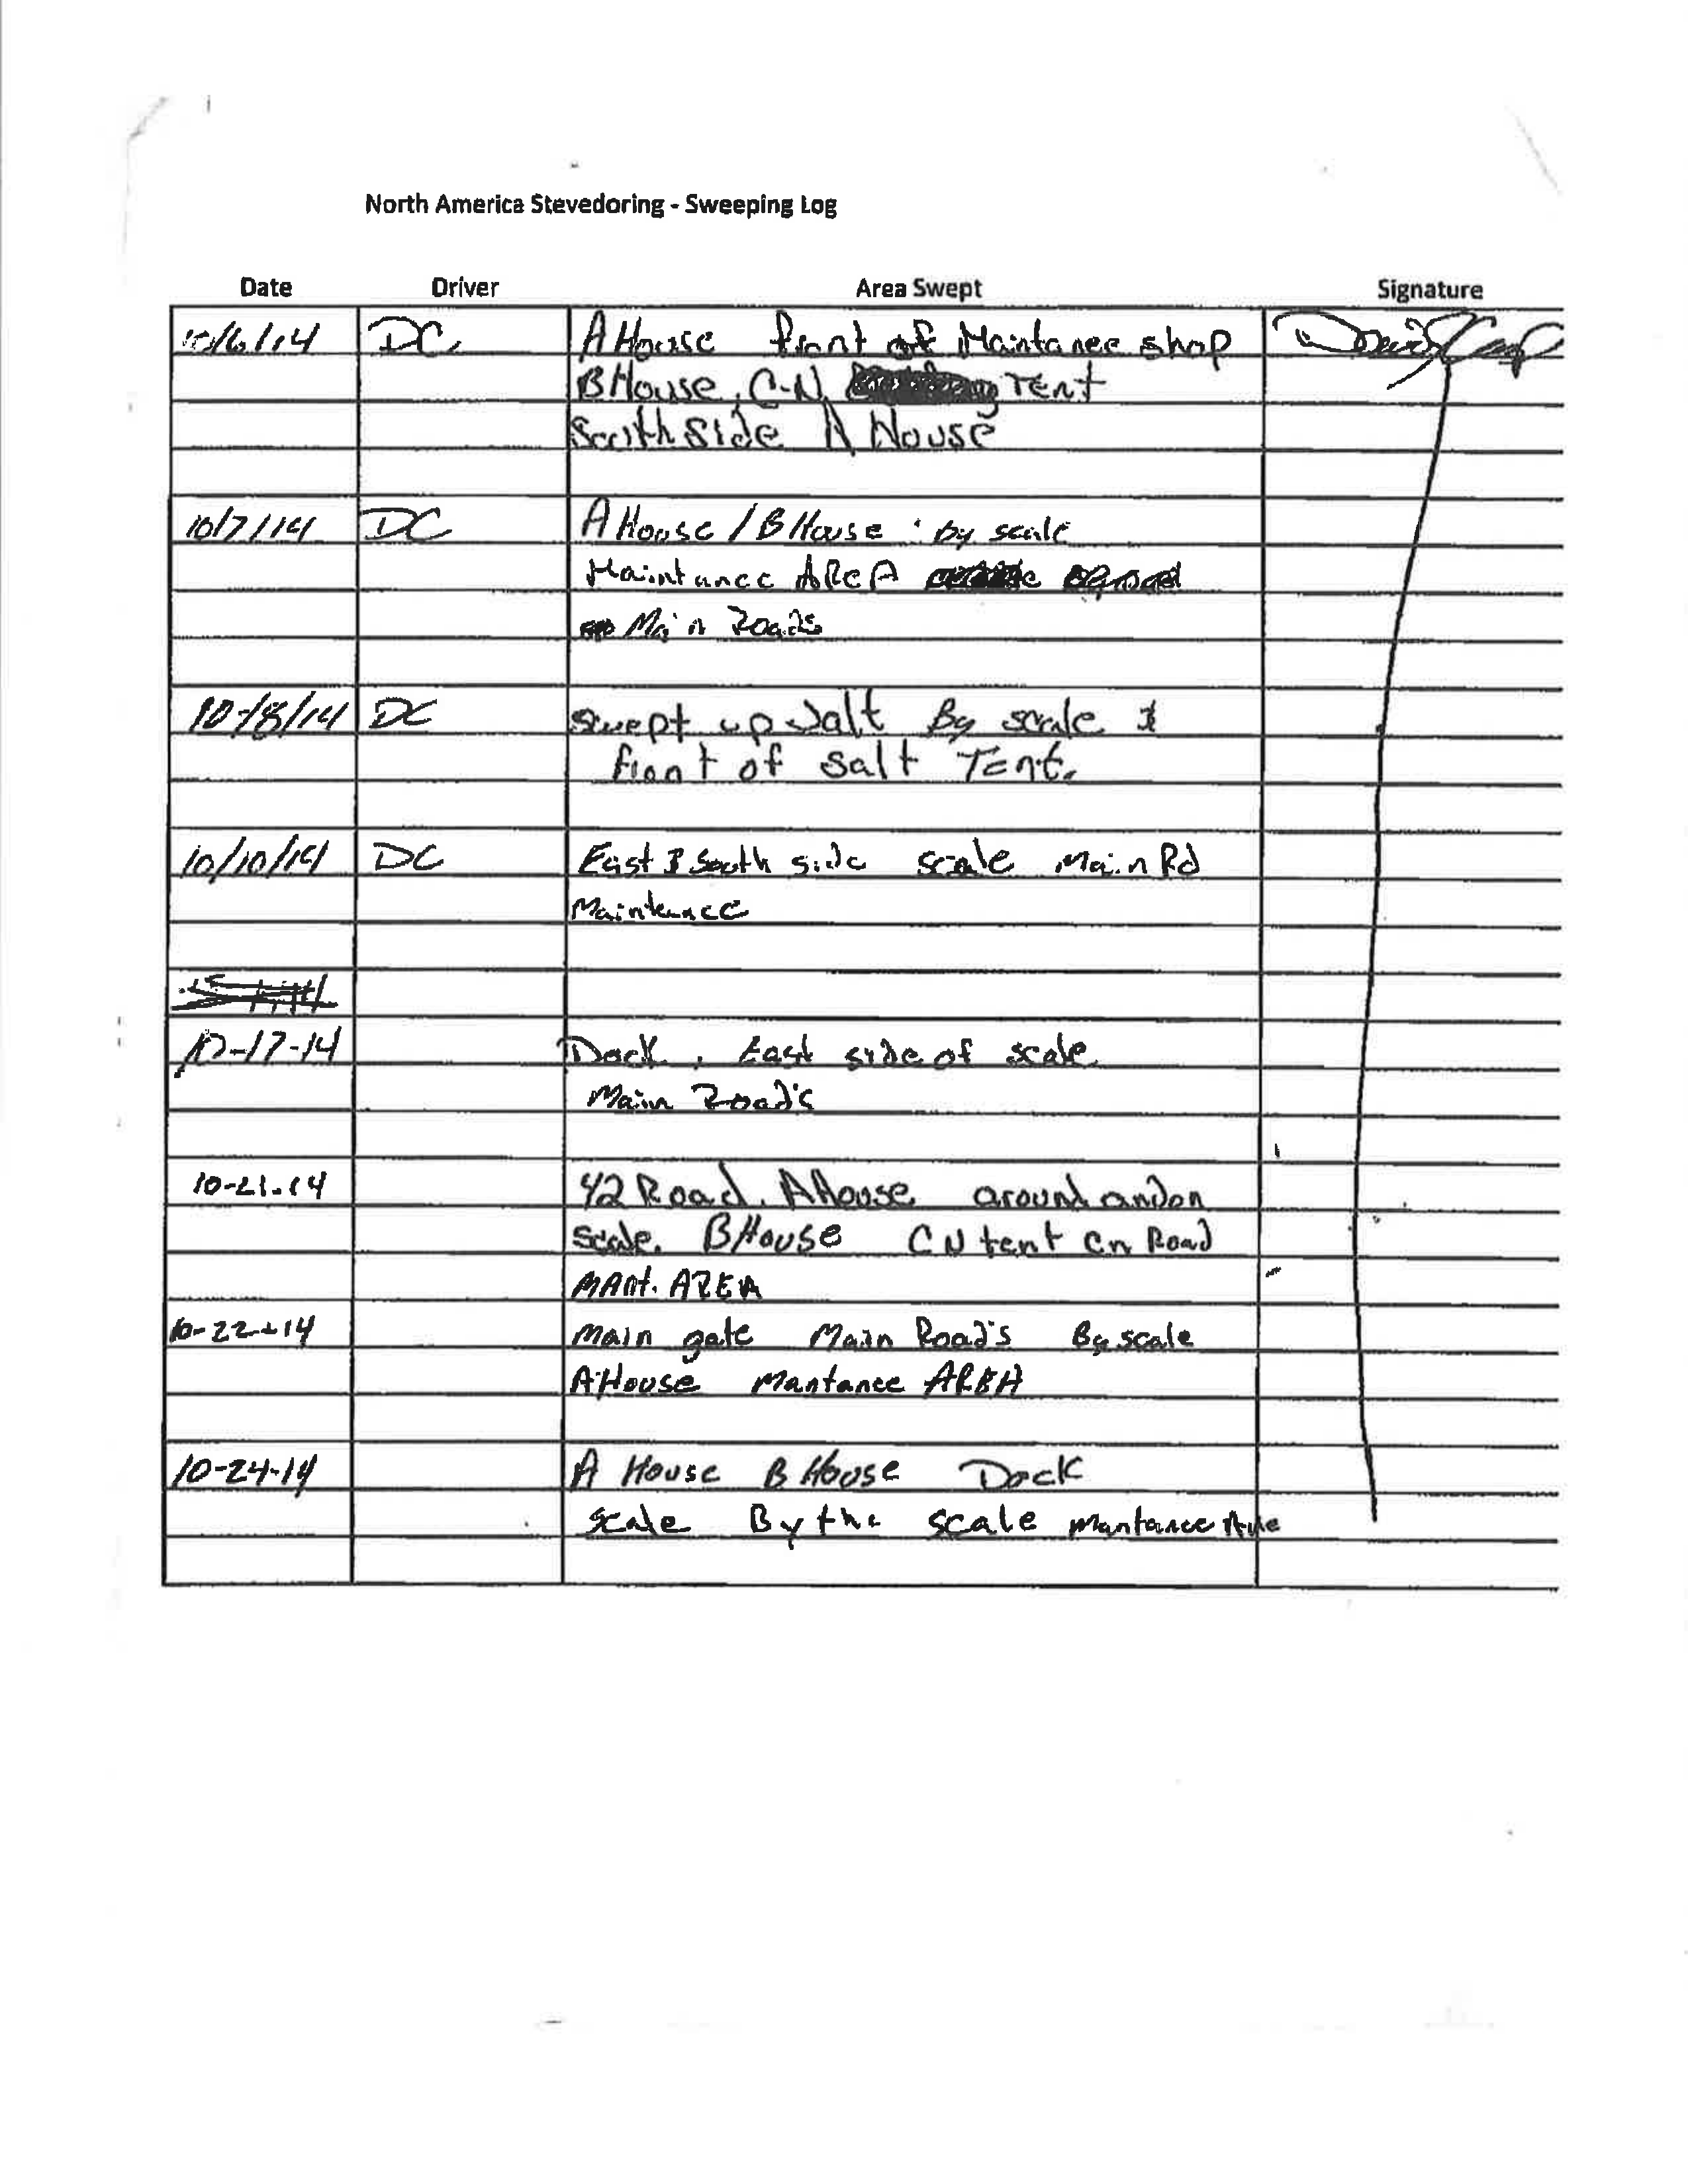 North America Stevedoring - Sweeping Log
Date Driver Area Swept Signature
10/6/14 DC A House front of Maintanee shop
B House, C-N Tent
South Side A House
10/7/14 DC A House / B House by scale
Maintance AReA
Main Roads
10/8/14 DC Swept up Salt By scale &
front of Salt Tent.
10/10/14 DC East & South side scale Main Rd
Maintence
10-17-14 Dock, East side of scale
Main Road's
10-21-14 42 Road. A House around and on
scale. B House CN tent CN Road
MAnt. AREA
10-22-14 Main gate Main Road's By scale
A House Mantance AREA
10-24-14 A House B House Dock
scale By the scale Mantance